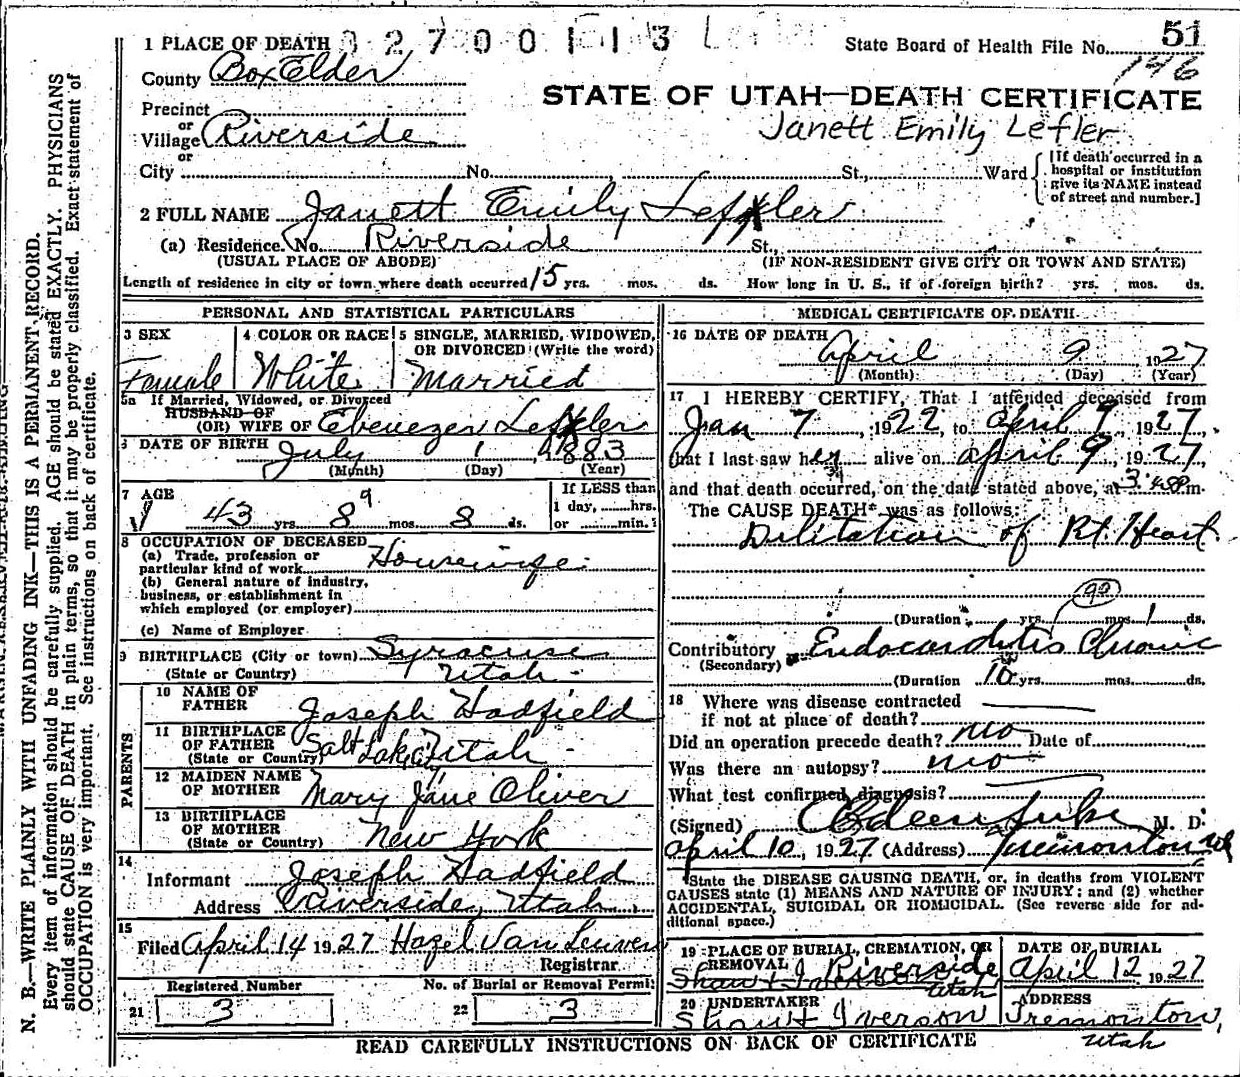 1 PLACE OF DEATH 02700113 Lefler
State Board of Health File No. 51
146
County Box Elder
STATE OF UTAH—DEATH CERTIFICATE
Janett Emily Lefler
Precinct
or
Village Riverside
or
City No. St., Ward
[If death occurred in a
hospital or institution
give its NAME instead
of street and number.]
2 FULL NAME Janett Emily Leffler
(a) Residence. No. Riverside St.,
(USUAL PLACE OF ABODE) (IF NON-RESIDENT GIVE CITY OR TOWN AND STATE)
Length of residence in city or town where death occurred 15 yrs. mos. ds. How long in U. S., if of foreign birth? yrs. mos. ds.
PERSONAL AND STATISTICAL PARTICULARS
3 SEX
Female
4 COLOR OR RACE
White
5 SINGLE, MARRIED, WIDOWED,
OR DIVORCED (Write the word)
Married
5a If Married, Widowed, or Divorced
HUSBAND OF
(OR) WIFE OF Ebenezer Leffler
6 DATE OF BIRTH July 1, 1883
(Month) (Day) (Year)
7 AGE
43 yrs. 8 9 mos. 8 ds.
If LESS than
1 day, hrs.
or min.
8 OCCUPATION OF DECEASED
(a) Trade, profession or
particular kind of work Housewife
(b) General nature of industry,
business, or establishment in
which employed (or employer)
(c) Name of Employer
9 BIRTHPLACE (City or town) Syracuse
(State or Country) Utah
PARENTS
10 NAME OF
FATHER Joseph Hadfield
11 BIRTHPLACE
OF FATHER Salt Lake Utah
(State or Country)
12 MAIDEN NAME
OF MOTHER Mary Jane Oliver
13 BIRTHPLACE
OF MOTHER
(State or Country) New York
14
Informant Joseph Hadfield
Address Riverside, Utah
15
Filed April 14 1927 Hazel Van Leuven
Registrar
Registered Number No. of Burial or Removal Permit
21 3 22 3
MEDICAL CERTIFICATE OF DEATH
16 DATE OF DEATH
April 9 1927
(Month) (Day) (Year)
17 I HEREBY CERTIFY, That I attended deceased from
Jan 7, 1922, to April 9, 1927,
that I last saw her alive on April 9, 1927,
and that death occurred, on the date stated above, at m.
The CAUSE DEATH* was as follows:
Dilitation of Rt. Heart
90
(Duration yrs. mos. 1 ds.
Contributory Endocarditis Chronic
(Secondary)
(Duration yrs. mos. ds.
18 Where was disease contracted
if not at place of death?
Did an operation precede death? no Date of
Was there an autopsy? no
What test confirmed diagnosis?
(Signed) M. D.
April 10, 1927 (Address) Tremonton
*State the DISEASE CAUSING DEATH, or, in deaths from VIOLENT
CAUSES state (1) MEANS AND NATURE OF INJURY; and (2) whether
ACCIDENTAL, SUICIDAL OR HOMICIDAL. (See reverse side for ad-
ditional space.)
19 PLACE OF BURIAL, CREMATION, OR
REMOVAL Riverside
Utah
DATE OF BURIAL
April 12, 1927
20 UNDERTAKER
Shaw & Iverson
ADDRESS
Tremonton,
Utah
READ CAREFULLY INSTRUCTIONS ON BACK OF CERTIFICATE
N. B.—WRITE PLAINLY WITH UNFADING INK—THIS IS A PERMANENT RECORD.
Every item of information should be carefully supplied. AGE should be stated EXACTLY. PHYSICIANS
should state CAUSE OF DEATH in plain terms, so that it may be properly classified. Exact statement of
OCCUPATION is very important. See instructions on back of certificate.